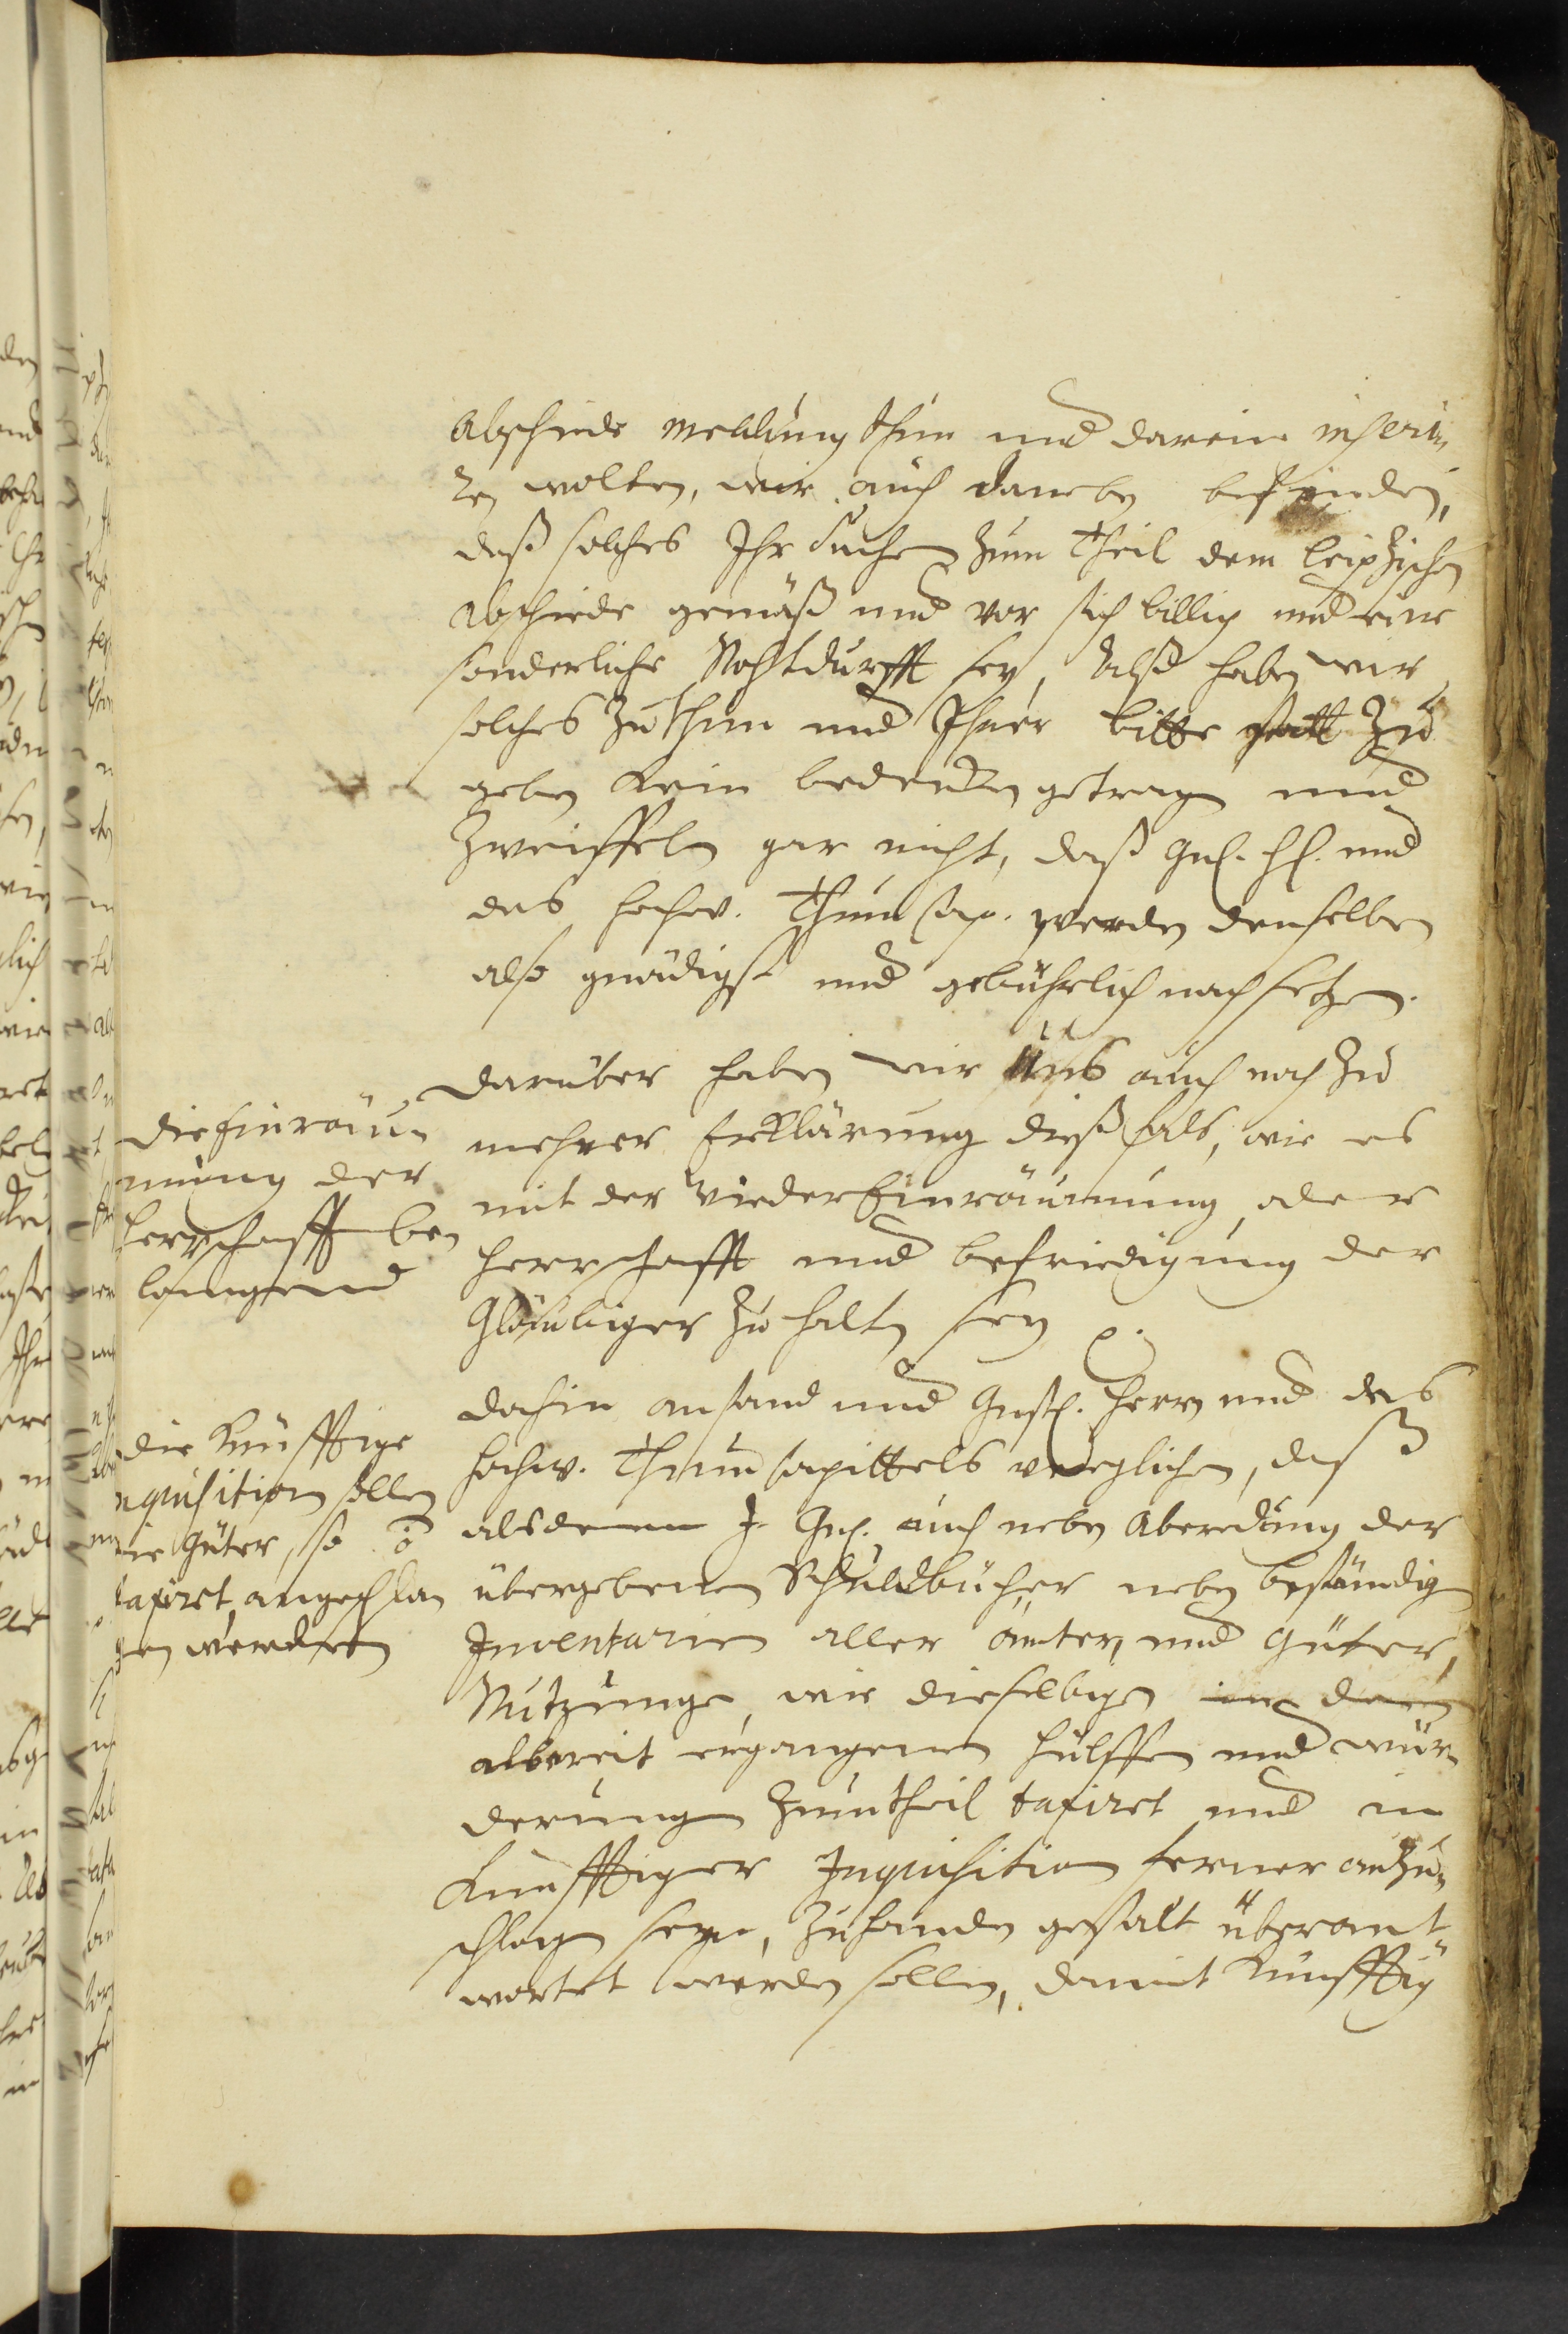 Abschiede meldung thun und darein inseri¬
ren wolten, wir auch daneben befinden,
daß solches Ihr suchen zum Theil dem Leipzischen
Abschiede gemäß und vor sich billig und eine
sonderliche Nohtdurfft sey, Alß haben wir
solches zuthun und Ihrer bitte statt zu
geben kein bedencken getragen und
zweiffeln gar nicht, daß Gnl. Hl. und
das hochw. Thum Cap. werden denselben
also gnädigst und gebührlich nachsetzen.
Darüber haben wir uns auch noch zu
mehrer Erklärung dießfals, wie es
mit der wieder Einräumung, der
Herrschafft und befriedigung der
Gläubiger zu halten sey
dahin an und Gnst. Herrn und des
hochw. Thum Capittels verglichen, daß
alsdenn J. Gnl. auch neben Aberedung der
übergebenen Schuldbücher neben bestendigen
Inventarien aller ämter, und Güter,
Nutzunge, wie dieselbigen in den
albereit ergangenen hülffen und wür¬
derungen zumtheil taxiret und in
Künfftiger Inquisition ferner anzu¬
schlagen seyn, zuhanden gestalt überant¬
wortet werden sollen, damit künfftig
die Einräu¬
mung der
Herrschafft be¬
langend
die Künfftige
nquisition sollen
ie Güter, so
taxiret, angeschla
gen werden